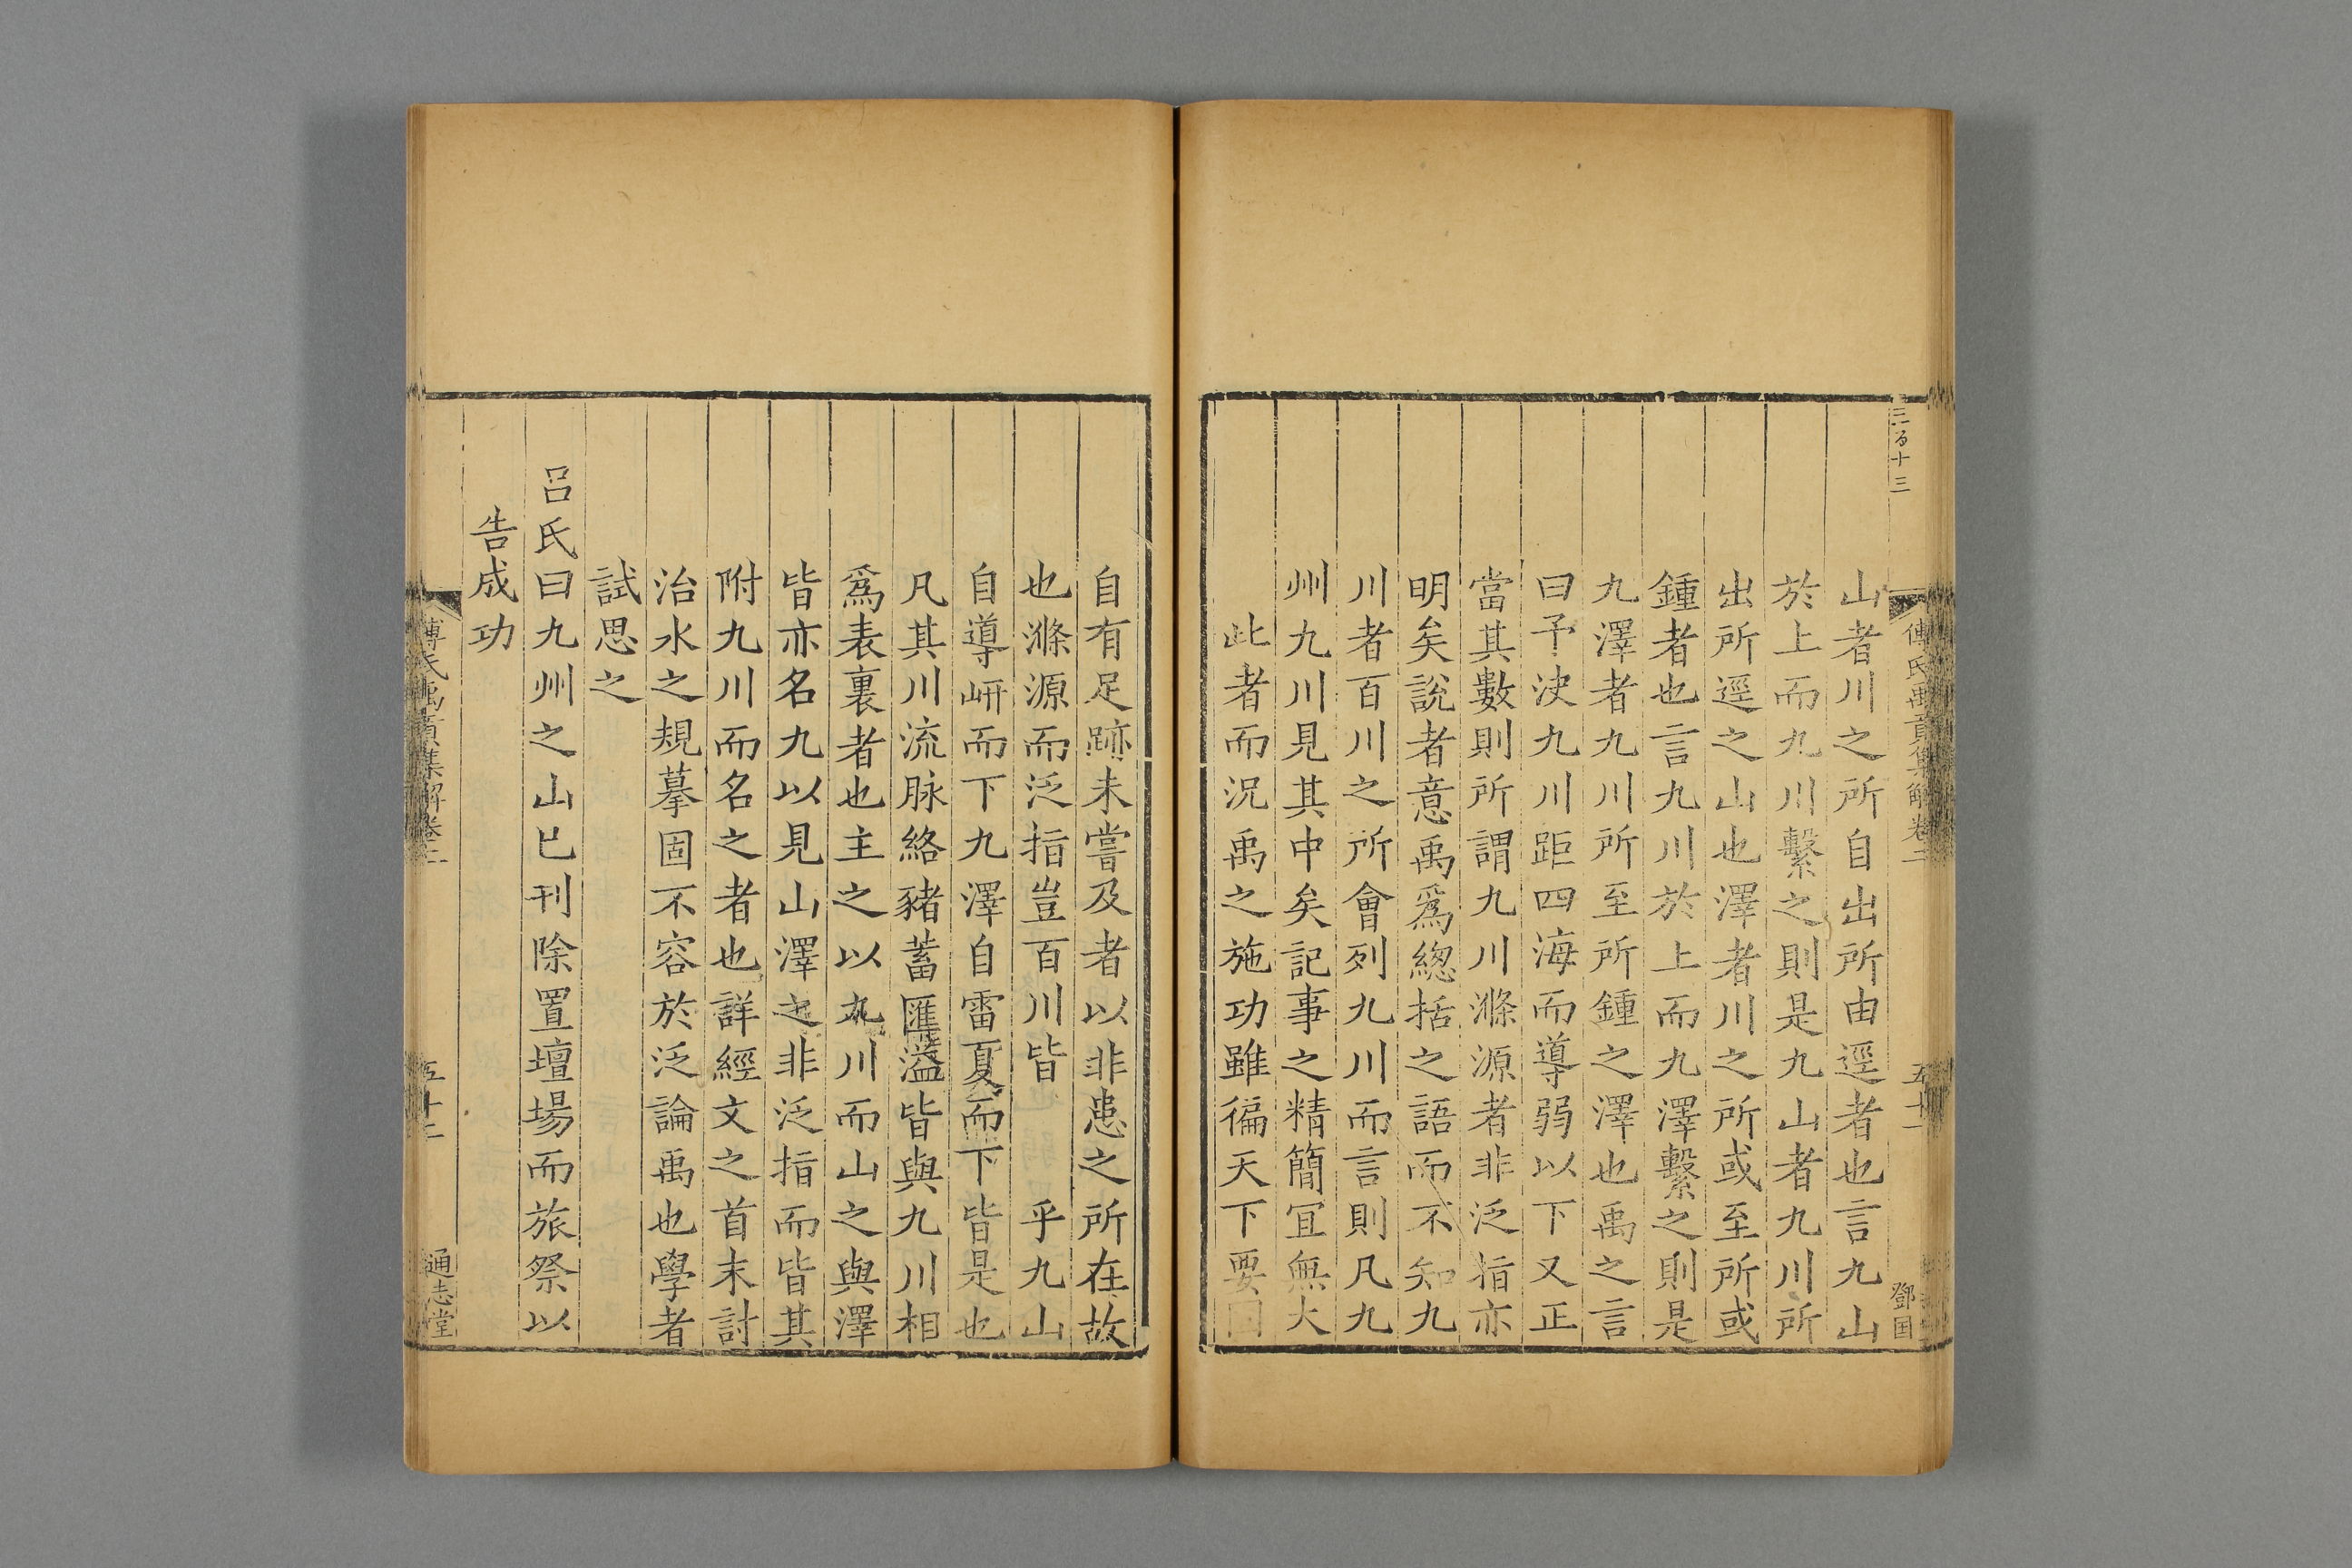 三百十三
傅氏禹貢集解卷二
五十二
鄧国
山者川之所自出所由逕者也言九山
於上而九川繫之則是九山者九川所
出所逕之山也澤者川之所或至所或
鍾者也言九川於上而九澤繫之則是
九澤者九川所至所鍾之澤也禹之言
曰予决九川距四海而導弱以下又正
當其數則所謂九川滌源者非泛指亦
明矣說者意禹爲緫括之語而不知九
川者百川之所會列九川而言則凡九
州九川見其中矣記事之精簡宜無大
此者而況禹之施功雖徧天下要
自有足跡未嘗及者以非患之所在故
也滌源而泛指豈百川皆 乎九山
自導岍而下九澤自雷夏而下皆是也
凡其川流脉絡豬蓄匯溢皆與九川相
爲表裏者也主之以九川而山之與澤
皆亦名九以見山澤之非泛指而皆其
附九川而名之者也詳經文之首末討
治水之規摹固不容於泛論禹也學者
試思之
呂氏曰九州之山已刊除置壇場而旅祭以
告成功
傅氏禹貢集解卷二
五十二
通志堂